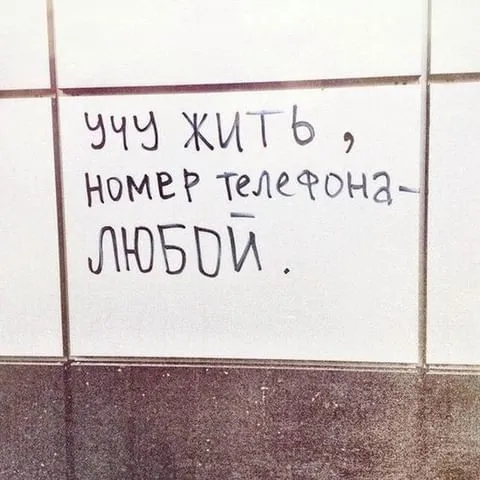 учу жить,
номер телефона -
ЛЮБОЙ.